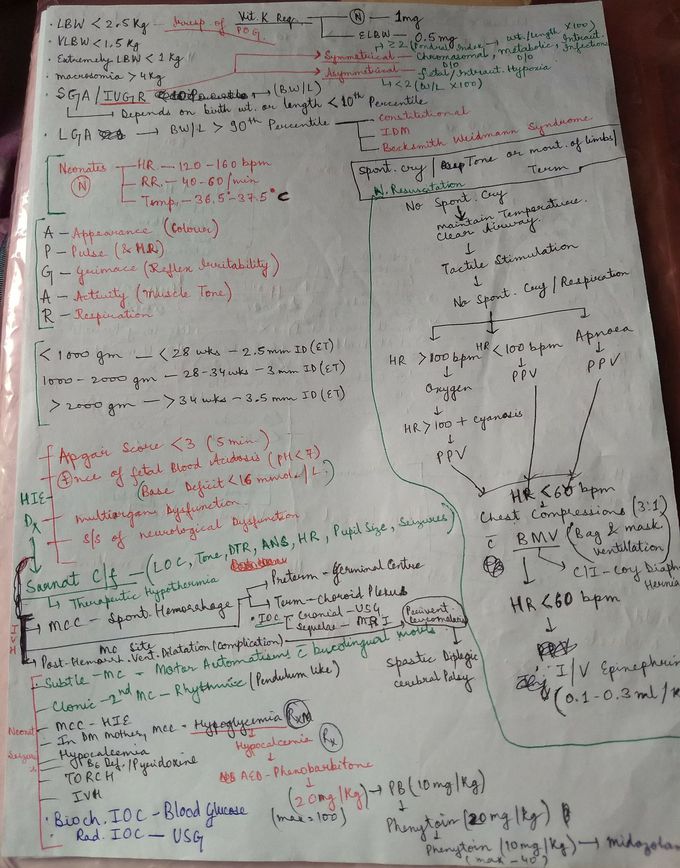 · LBW < 2.5 Kg - Irresp. of POG
Vit. K Req. → N → 1mg
ELBW → 0.5mg
· VLBW < 1.5 Kg
· Extremely LBW < 1 Kg
· macrosomia > 4 Kg
≥ 2 (Ponderal Index → wt./length X100)
Symmetrical - Chromosomal, metabolic, Intraut. Infection
Asymmetrical - fetal/Intraut. Hypoxia
< 2 (W/L X100)
· SGA / IUGR → (BW/L)
Depends on birth wt. or length < 10th Percentile
· LGA → BW/L > 90th Percentile
Constitutional
IDM
Becksmith Weidmann Syndrome
Neonates (N)
HR - 120-160 bpm
RR. - 40-60/min
Temp. - 36.5°-37.5°C
A - Appearance (Colour)
P - Pulse (& HR)
G - Grimace (Reflex Irritability)
A - Activity (Muscle Tone)
R - Respiration
< 1000 gm - < 28 wks - 2.5mm ID (ET)
1000-2000 gm - 28-34 wks - 3mm ID (ET)
> 2000 gm - > 34 wks - 3.5mm ID (ET)
Spont. cry / Tone or movt. of limbs /
Term
N. Resuscitation
No Spont. Cry
maintain Temperature.
Clear Airway.
Tactile Stimulation
No Spont. Cry / Respiration
HR > 100 bpm
HR < 100 bpm
Apnoea
Oxygen
PPV
PPV
HR > 100 + cyanosis
PPV
HR < 60 bpm
Chest Compressions (3:1)
c̄ BMV (Bag & mask ventillation)
C/I - Cog Diaph Hernia
HR < 60 bpm
I/V Epinephrin
(0.1-0.3 ml/k
HIE
Dx
Apgar Score < 3 (5 min)
nce of fetal Blood Acidosis (pH < 7)
(Base Deficit < 16 mmole/L)
multiorgan Dysfunction
S/S of neurological Dysfunction
Sarnat C/f - (LOC, Tone, DTR, ANS, HR, Pupil Size, Seizures)
Therapeutic Hypothermia
IVH
MCC - Spont. Hemorrhage
Preterm - Germinal Centre
Term - Choroid Plexus
MC Site
· IOC - Cranial - USG
Sequelae - MRI
Post-Hemorrh. Vent. Dilatation (complication)
Perivent. leucomalacia
Spastic Diplegic cerebral Palsy
Neonat Seizures
Subtle - MC - Motor Automatisms c̄ bucolingual movts
Clonic - 2nd MC - Rhythmic (Pendulum like)
MCC - HIE
In DM mother, MCC = Hypoglycemia
Rx
Hypocalcemia
Hypocalcemia
Rx
B6 Def. / Pyridoxine
TORCH
IVH
AED - Phenobarbitone
(20mg/Kg) → PB (10mg/Kg)
(max = 100)
Phenytoin (20mg/Kg)
Phenytoin (10mg/Kg) → midazolam
(max - 40)
· Bioch. IOC - Blood Glucose
· Rad. IOC - USG